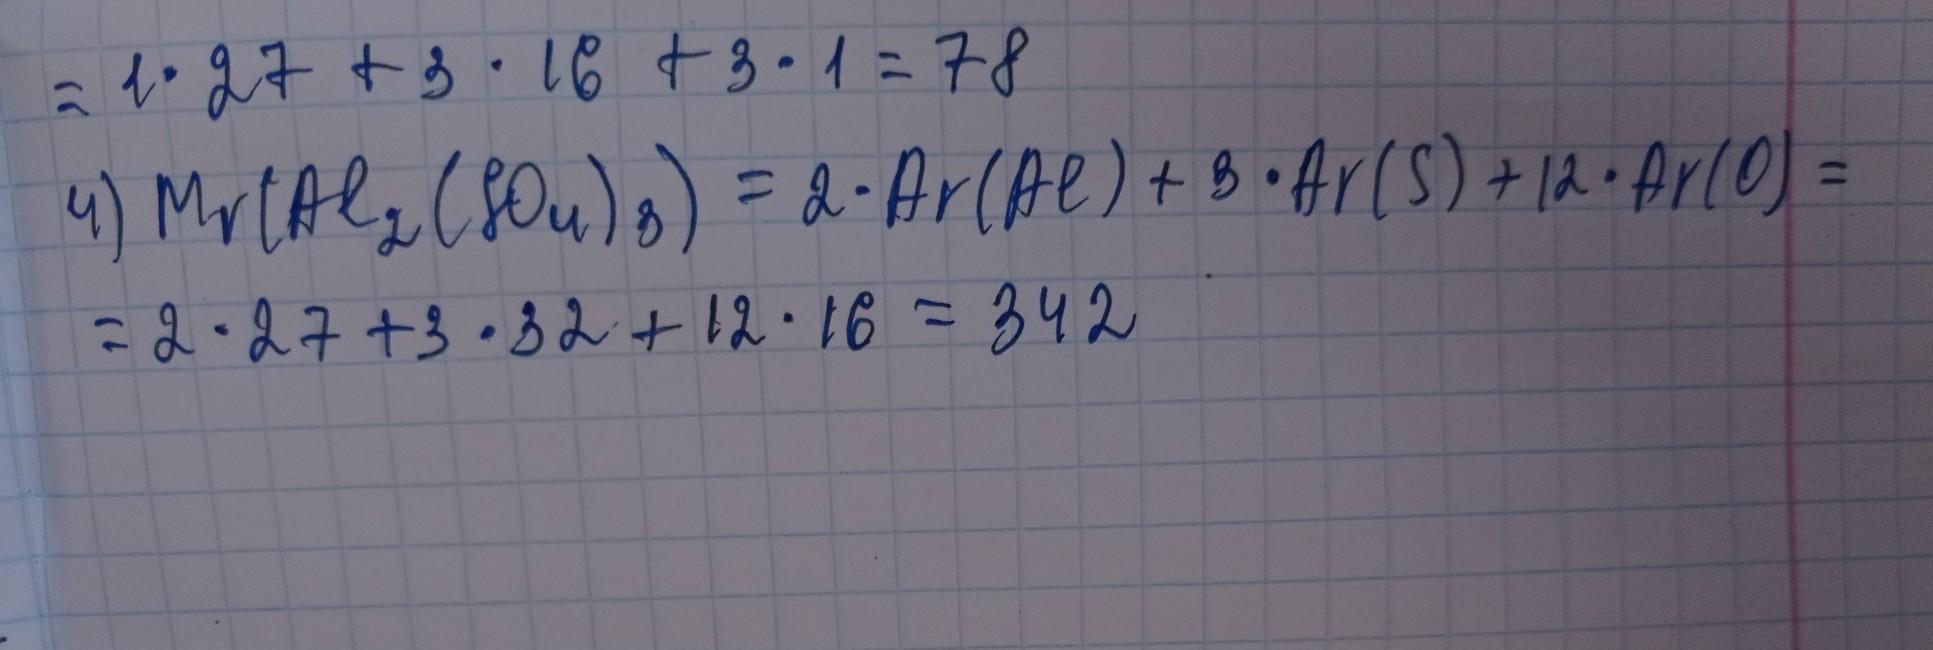 = 1 · 27 + 3 · 16 + 3 · 1 = 78
4) Mr(Al₂(SO₄)₃) = 2 · Ar(Al) + 3 · Ar(S) + 12 · Ar(O) =
= 2 · 27 + 3 · 32 + 12 · 16 = 342